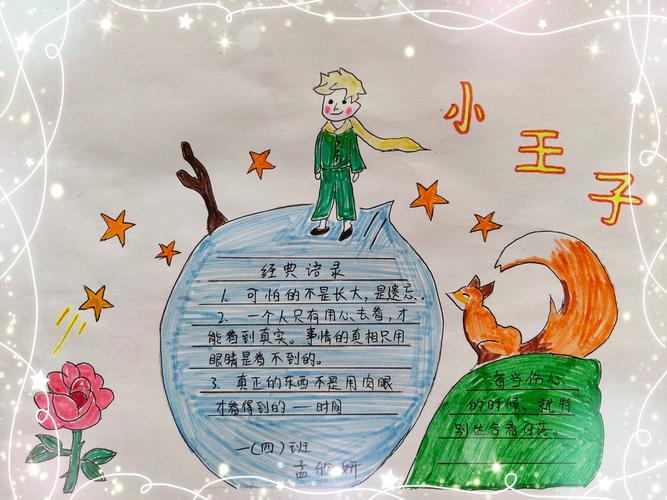 小王子
经典语录
1. 可怕的不是长大,是遗忘.
2. 一个人只有用心去看,才
能看到真实。事情的真相只用
眼睛是看不到的。
3. 真正的东西不是用肉眼
才看得到的——时间
一(四)班
孟 妍
每当伤心
的时候,就特
别 看日落。